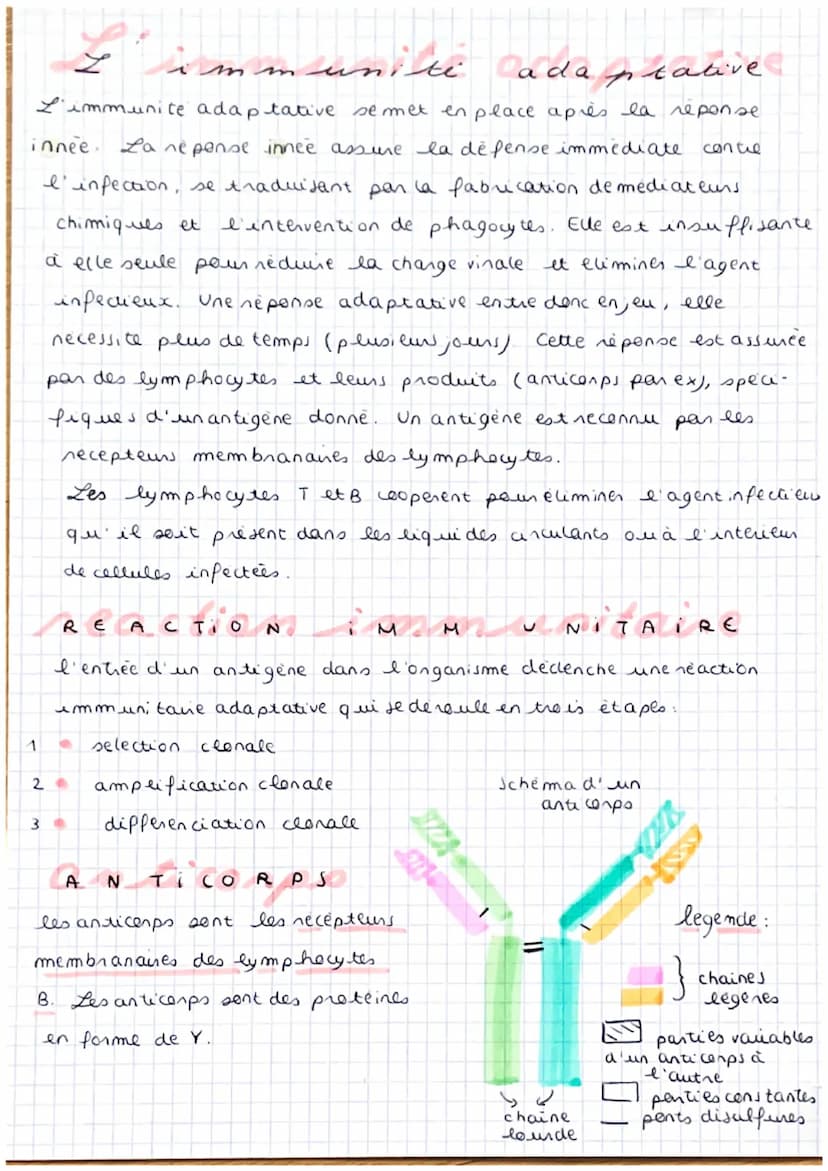 L'immunité adaptative
L'immunité adaptative se met en place après la réponse
innée. La réponse innée assure la défense immédiate contre
l'infection, se traduisant par la fabrication de médiateurs
chimiques et l'intervention de phagocytes. Elle est insuffisante
à elle seule pour réduire la charge virale et éliminer l'agent
infectieux. Une réponse adaptative entre donc en jeu, elle
nécessite plus de temps (plusieurs jours) Cette réponse est assurée
par des lymphocytes et leurs produits (anticorps par ex), spéci-
fiques d'un antigène donné. Un antigène est reconnu par les
récepteurs membranaires des lymphocytes.
Les lymphocytes T et B coopèrent pour éliminer l'agent infectieu
qu'il soit présent dans les liquides circulants ou à l'intérieur
de cellules infectées.
REACTION IMMUNITAIRE
l'entrée d'un antigène dans l'organisme déclenche une réaction
immunitaire adaptative qui se déroule en trois étapes :
1 • sélection clonale
2 • amplification clonale
3 • différenciation clonale
Schéma d'un
anticorps
ANTICORPS
les anticorps sont les récepteurs
membranaires des lymphocytes
B. Les anticorps sont des protéines
en forme de Y.
légende :
chaines
légères
parties variables
d'un anticorps à
l'autre
parties constantes
ponts disulfures
chaîne
lourde